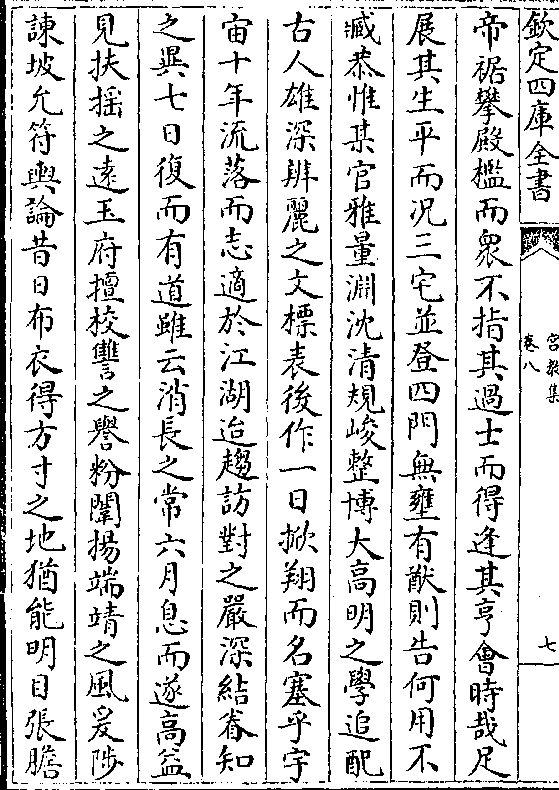 欽定四庫全書
宮教集
卷八
七
帝裾攀殿檻而衆不指其過士而得逢其亨會時哉足
展其生平而况三宅並登四門無壅有猷則告何用不
臧恭惟某官雅量淵沈清規峻整博大高明之學追配
古人雄深辨麗之文標表後作一日掀翔而名塞乎宇
宙十年流落而志適於江湖迨趨訪對之嚴深結眷知
之異七日復而有道雖云消長之常六月息而遂高益
見扶揺之逺玉府擅校讐之譽粉闈揚端靖之風爰陟
諌坡允符輿論昔日布衣得方寸之地猶能明目張膽